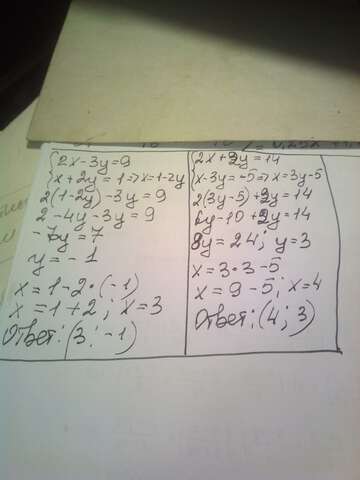 2x-3y=9
x+2y=1=>x=1-2y
2(1-2y)-3y=9
2-4y-3y=9
-7y=7
y=-1
x=1-2*(-1)
x=1+2; x=3
Ответ: (3; -1)
2x+2y=14
x-3y=-5=>x=3y-5
2(3y-5)+2y=14
6y-10+2y=14
8y=24; y=3
x=3*3-5
x=9-5; x=4
Ответ: (4; 3)